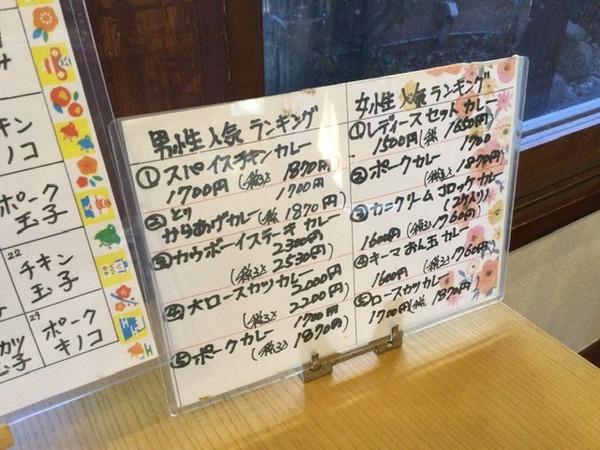 チキン
キノコ
ポーク
玉子
22
チキン
玉子
29
ポーク
キノコ
男性人気 ランキング
① スパイスチキンカレー
1700円 (税込 1870円)
② とり 1700円
からあげカレー (税 1870円)
③ カウボーイステーキ カレー
2300円
(税込 2530円)
④ 大ロースカツカレー
2000円
(税込 2200円)
1700円
⑤ ポークカレー (税込 1870円)
女性人気 ランキング
① レディースセット カレー
1500円 (税 1650円)
② ポークカレー 1700
(税込 1870円)
③ カニクリームコロッケカレー
(2ケ入り)
1600円 (税込 1760円)
④ キーマおん玉カレー
1600円 (税込 1760円)
⑤ ロースカツカレー
1700円 (税 1870円)